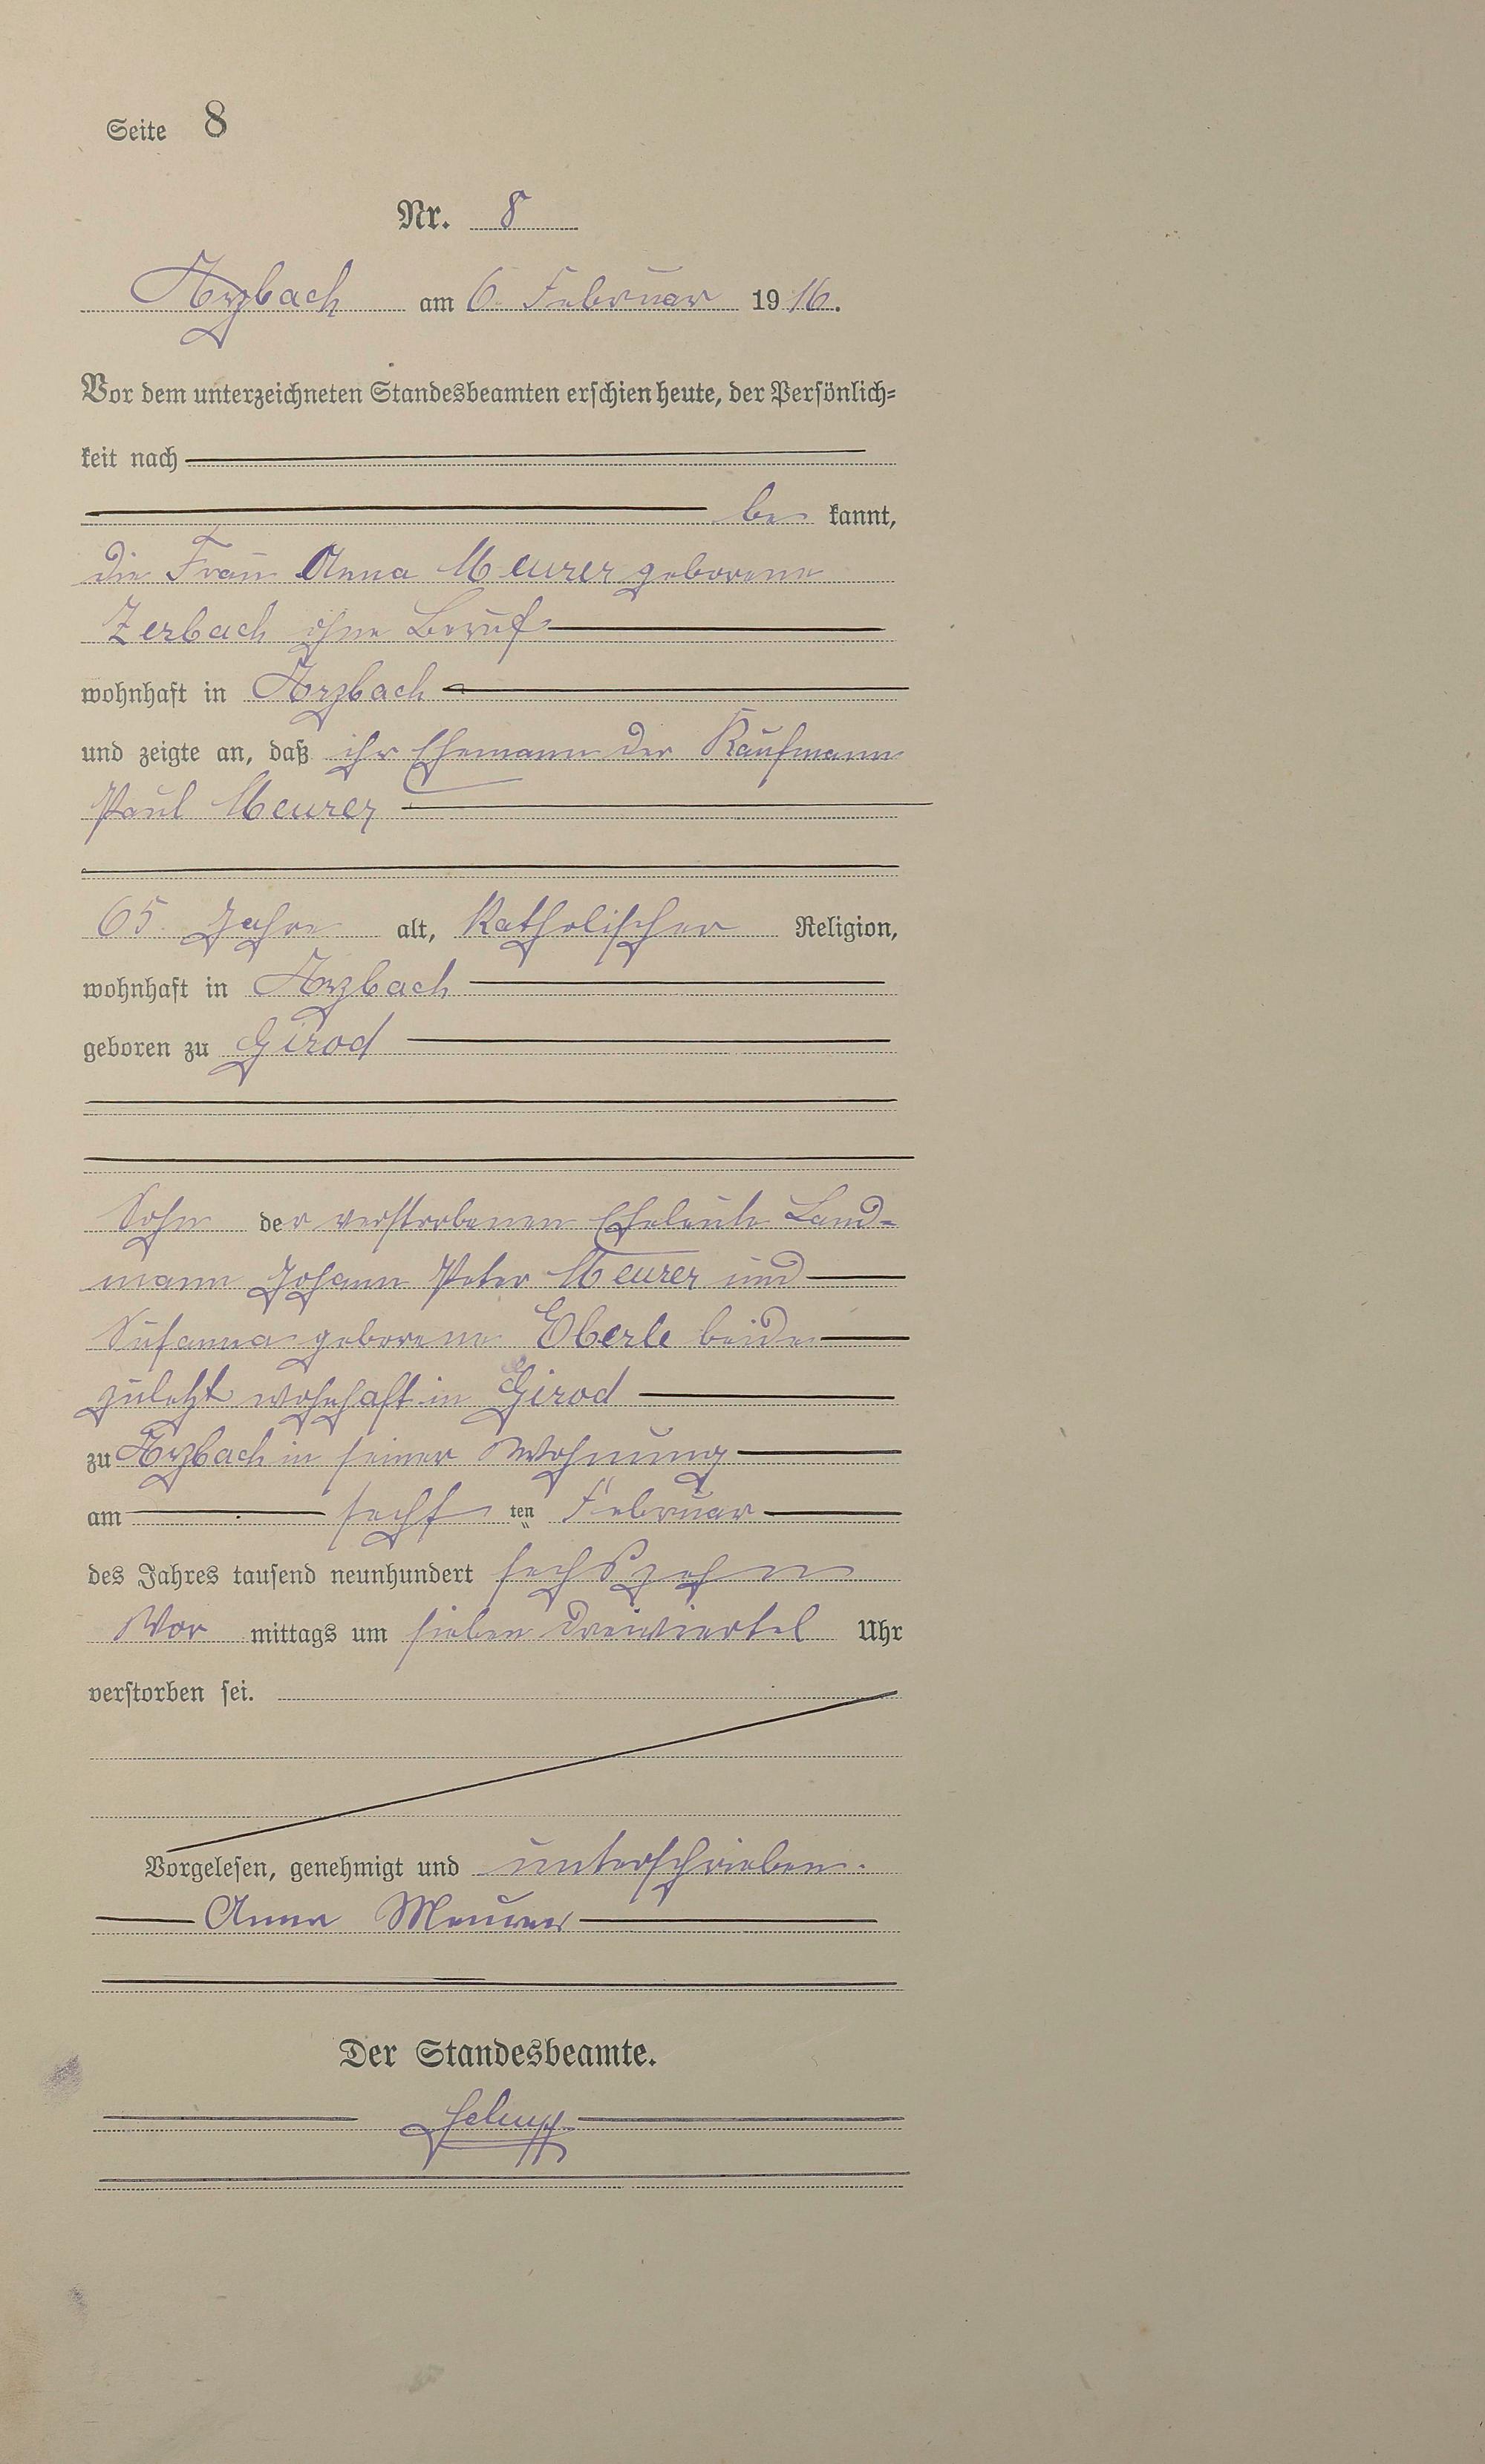 Seite 8
Nr. 8
Arzbach am 6. Februar 1916.
Vor dem unterzeichneten Standesbeamten erschien heute, der Persönlich=
keit nach
be kannt,
die Frau Anna Meurer geborene
Zerbach ohne Beruf
wohnhaft in Arzbach
und zeigte an, daß ihr Ehemann der Kaufmann
Paul Meurer
65 Jahre alt, katholischer Religion,
wohnhaft in Arzbach
geboren zu Girod
Sohn der verstorbenen Eheleute Land-
mann Johann Peter Meurer und
Susanna geborene Eberle beide
zuletzt wohnhaft in Girod
zu Arzbach in seiner Wohnung
am sechs ten Februar
des Jahres tausend neunhundert sechszehn
Vor mittags um sieben dreiviertel Uhr
verstorben sei.
Vorgelesen, genehmigt und unterschrieben.
Anna Meurer
Der Standesbeamte.